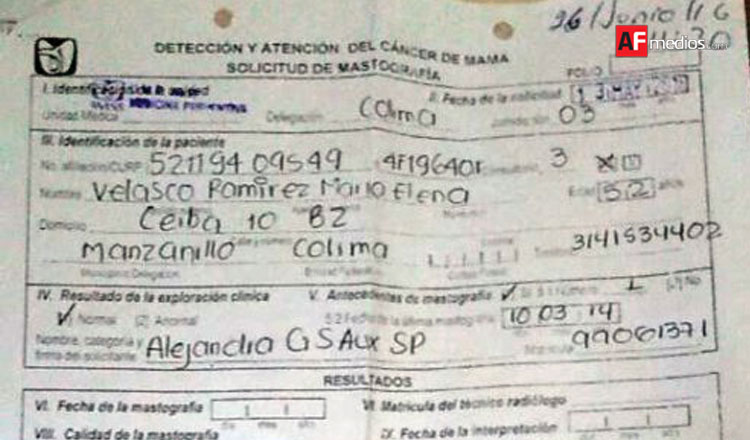 36/Junio/16
AFmedios.com
DETECCIÓN Y ATENCIÓN DEL CÁNCER DE MAMA
SOLICITUD DE MASTOGRAFÍA
FOLIO
I. Identificación de la unidad II. Fecha de la solicitud
MEDICINA PREVENTIVA
Unidad Médica Delegación Colima Jurisdicción 03
III. Identificación de la paciente
No. afiliación/CURP 5211940 9549 4F1964OR Consultorio 3
Nombre Velasco Ramirez Maria Elena Edad 52 años
Domicilio Ceiba 10 B2
Manzanillo Colima 3141534402
Municipio/Delegación Código Postal
IV. Resultado de la exploración clínica V. Antecedentes de mastografía Sí (2) No
(1) Normal (2) Anormal 5.2 Fecha de la última mastografía 10 03 14
Nombre, categoría y firma del solicitante Alejandra G S Aux SP Matrícula 99061371
RESULTADOS
VI. Fecha de la mastografía VII. Matrícula del técnico radiólogo
día mes año
VIII. Calidad de la mastografía IX. Fecha de la interpretación
día mes año